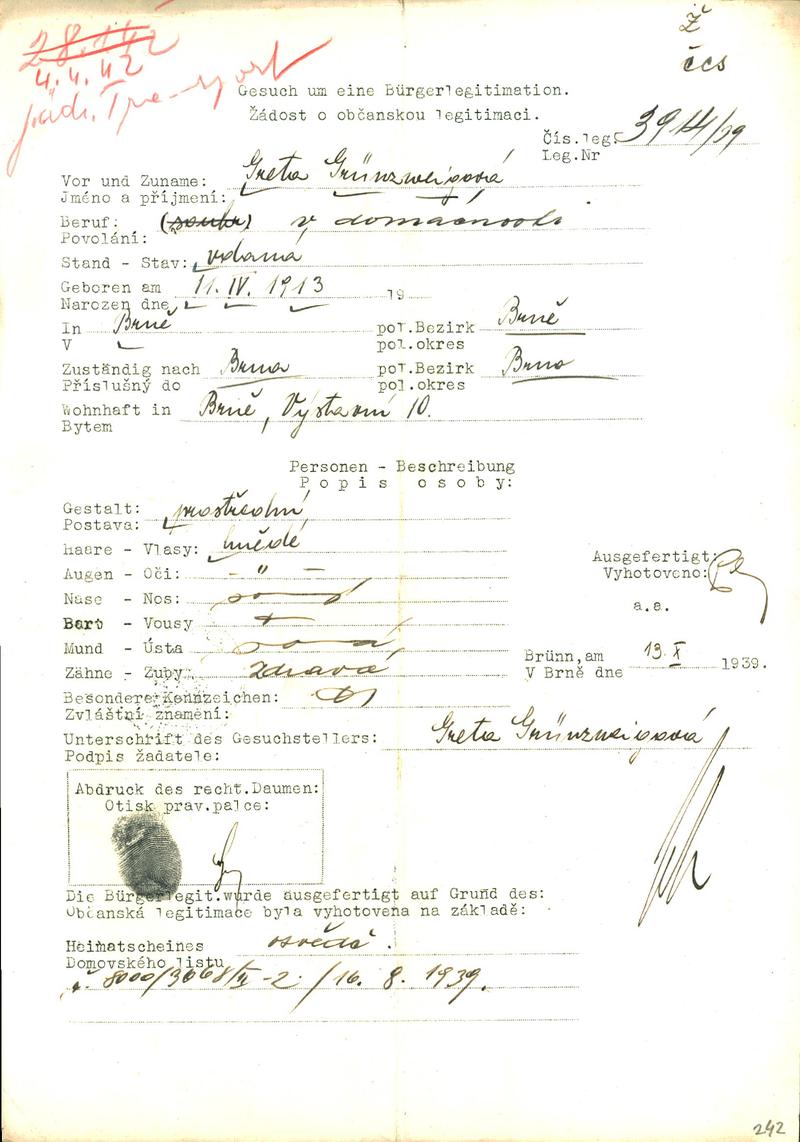 Ž
28.1.42
čcs
4.4.42
žid. Transport
Gesuch um eine Bürgerlegitimation.
Žádost o občanskou legitimaci.
Čís.leg. 3914/39
Leg.Nr
Vor und Zuname: Greta Grünzweigová
Jméno a příjmení:
Beruf: (soukr) v domácnosti
Povolání:
Stand - Stav: vdaná
Geboren am 11. IV. 1913 19
Narozen dne
In Brně pol.Bezirk Brně
V pol.okres
Zuständig nach Brna pol.Bezirk Brno
Příslušný do pol.okres
Wohnhaft in Brně, Výstavní 10.
Bytem
Personen - Beschreibung
Popis osoby:
Gestalt: prostřední
Postava:
Haare - Vlasy: hnědé
Augen - Oči: - " -
Ausgefertigt:
Vyhotoveno:
Nase - Nos:
a.a.
Bart - Vousy
Mund - Ústa
Zähne - Zuby: zdravá
Brünn,am 13. X 1939.
V Brně dne
Besondere Kennzeichen:
Zvláštní znamení:
Unterschrift des Gesuchstellers: Greta Grünzweigová
Podpis žadatele:
Abdruck des recht.Daumen:
Otisk prav.palce:
Die Bürgerlegit.wurde ausgefertigt auf Grund des:
Občanská legitimace byla vyhotovena na základě:
Heimatscheines osvědč.
Domovského listu
č. 8000/3068/II-2. /16. 8. 1939.
242